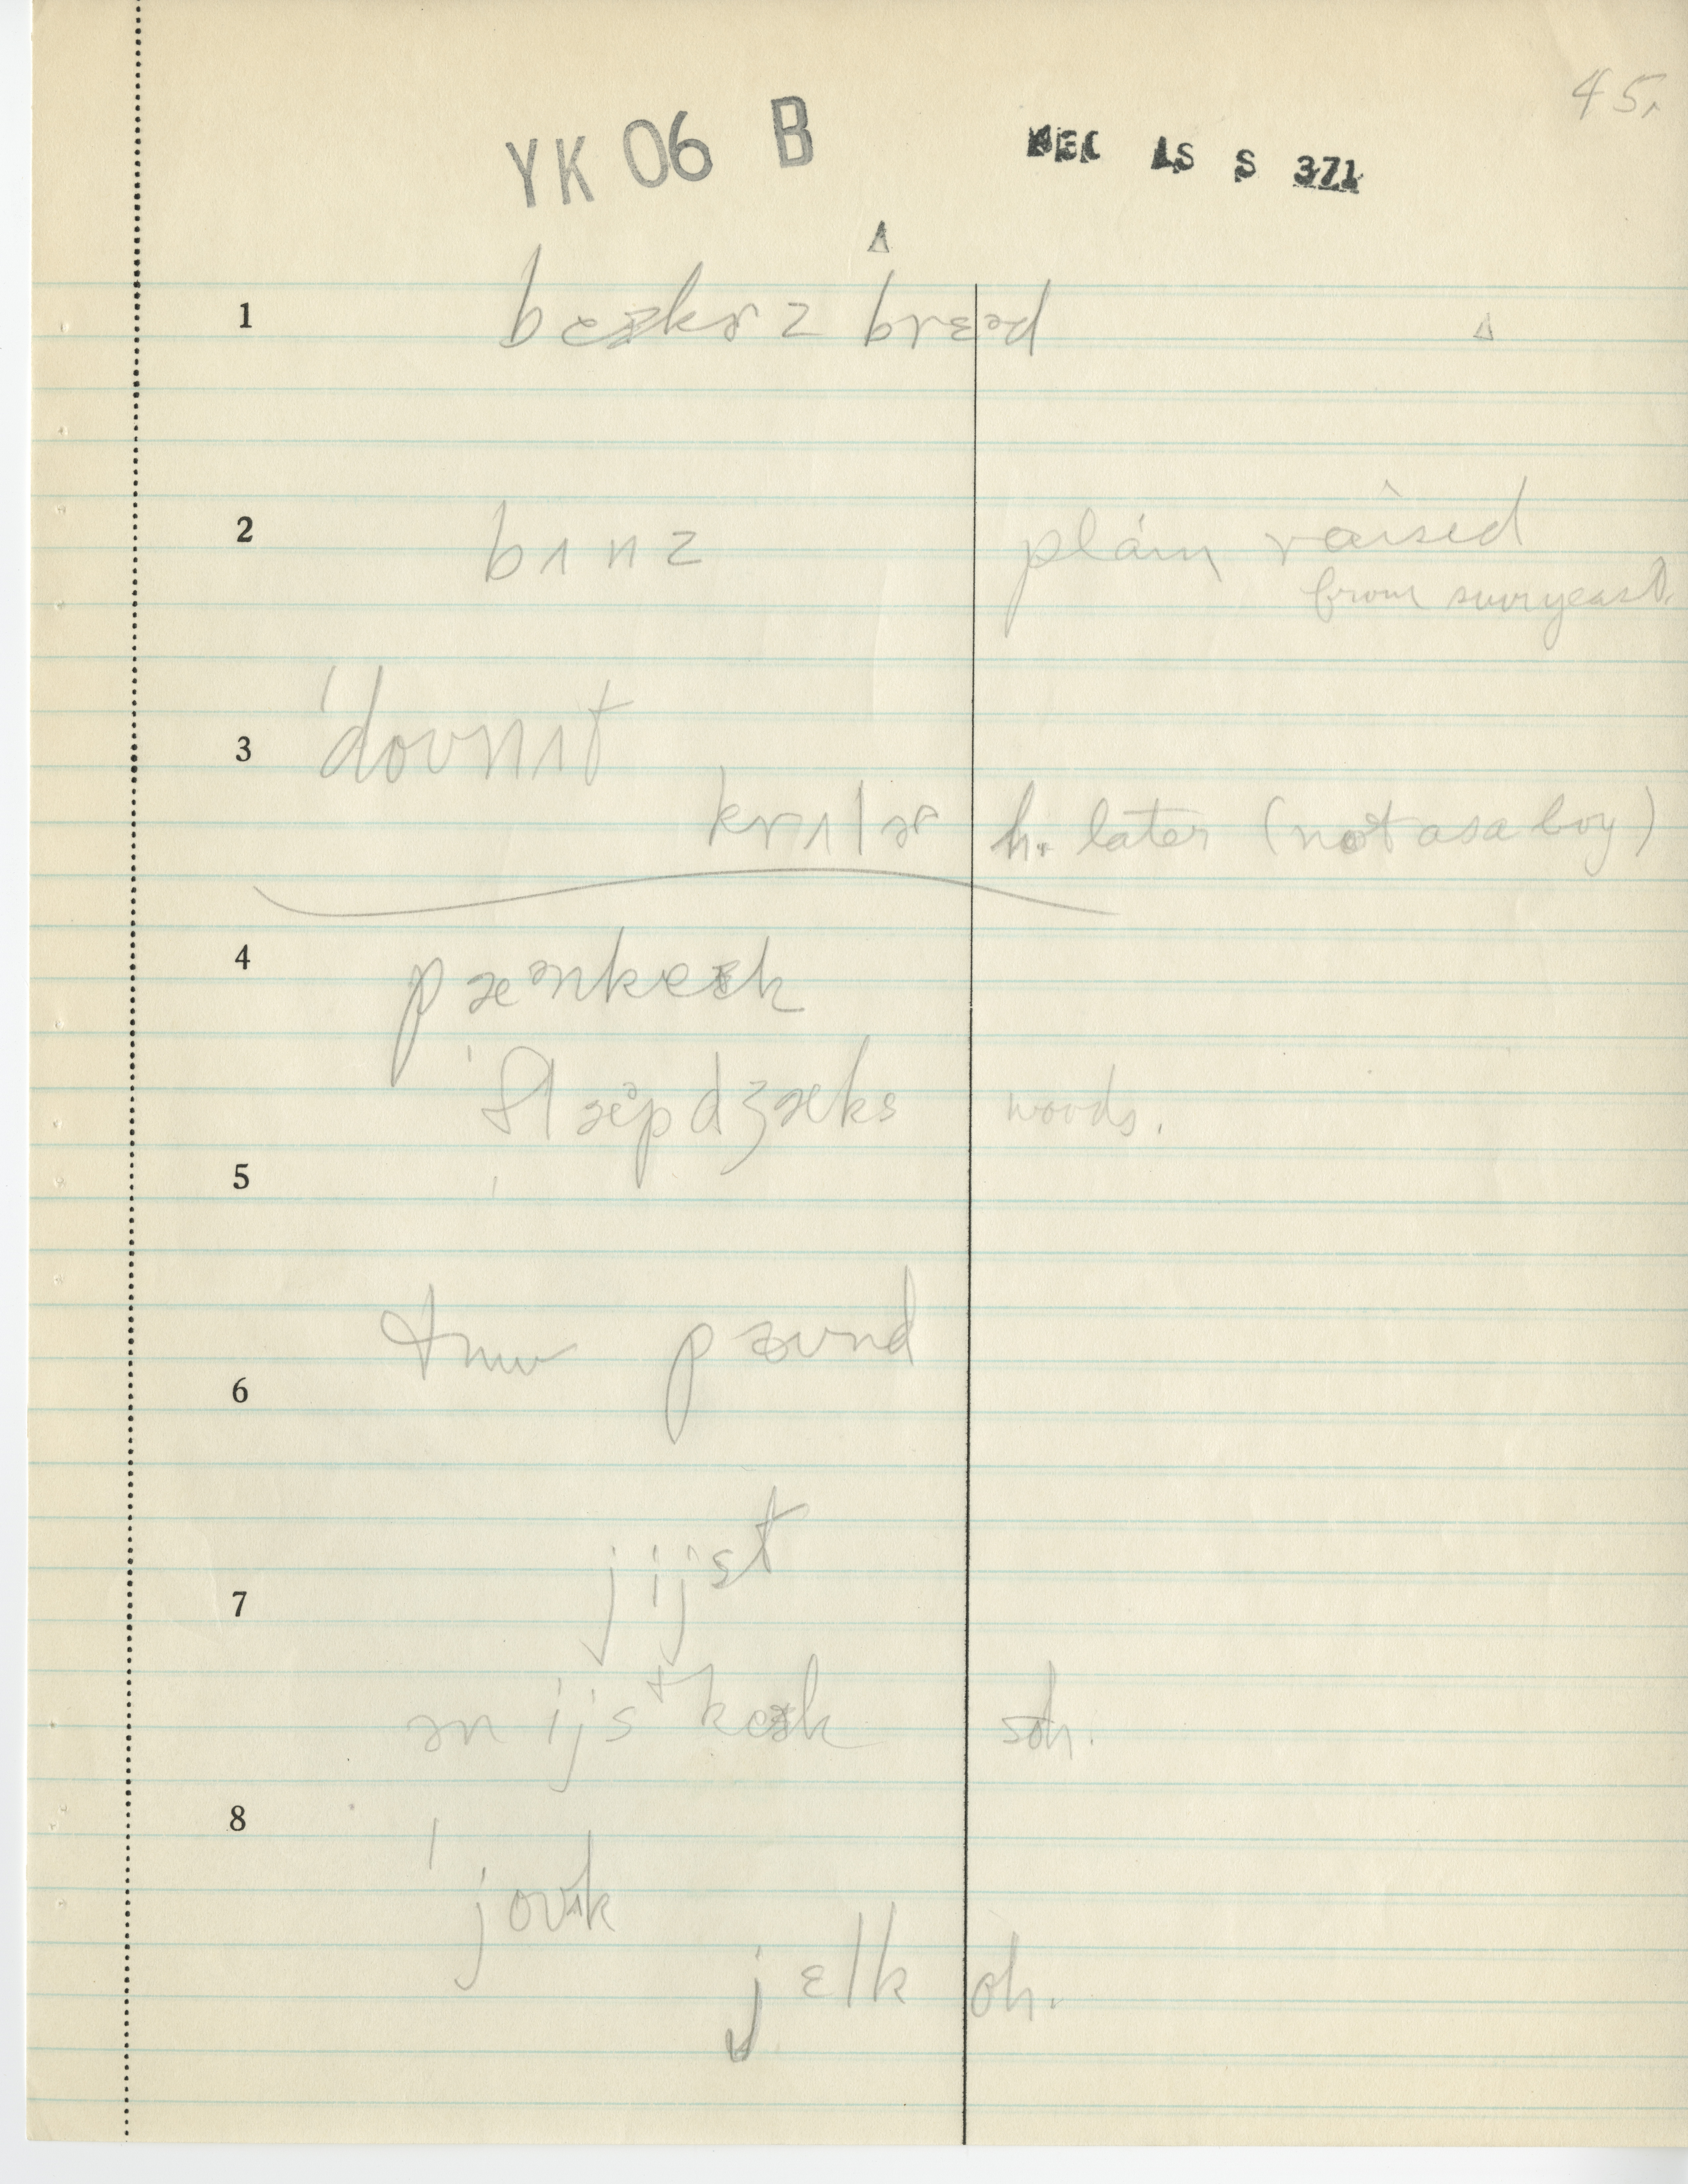 45.
YK 06 B DEC LS S 371
Δ
1 beɪkɚz brɛəd Δ
2 bʌnz plain raised
from sour yeast.
3 ˈdoʊnʌt
krʌlɚ h. later (not as a boy)
4 pæᵊnkeɪk
ˈflæᵊpdʒæks woods.
5
6 tuw pæʊnd
7 jijst
ən ijstkeɪk soh.
8
ˈjoʊk
jɛlk oh.